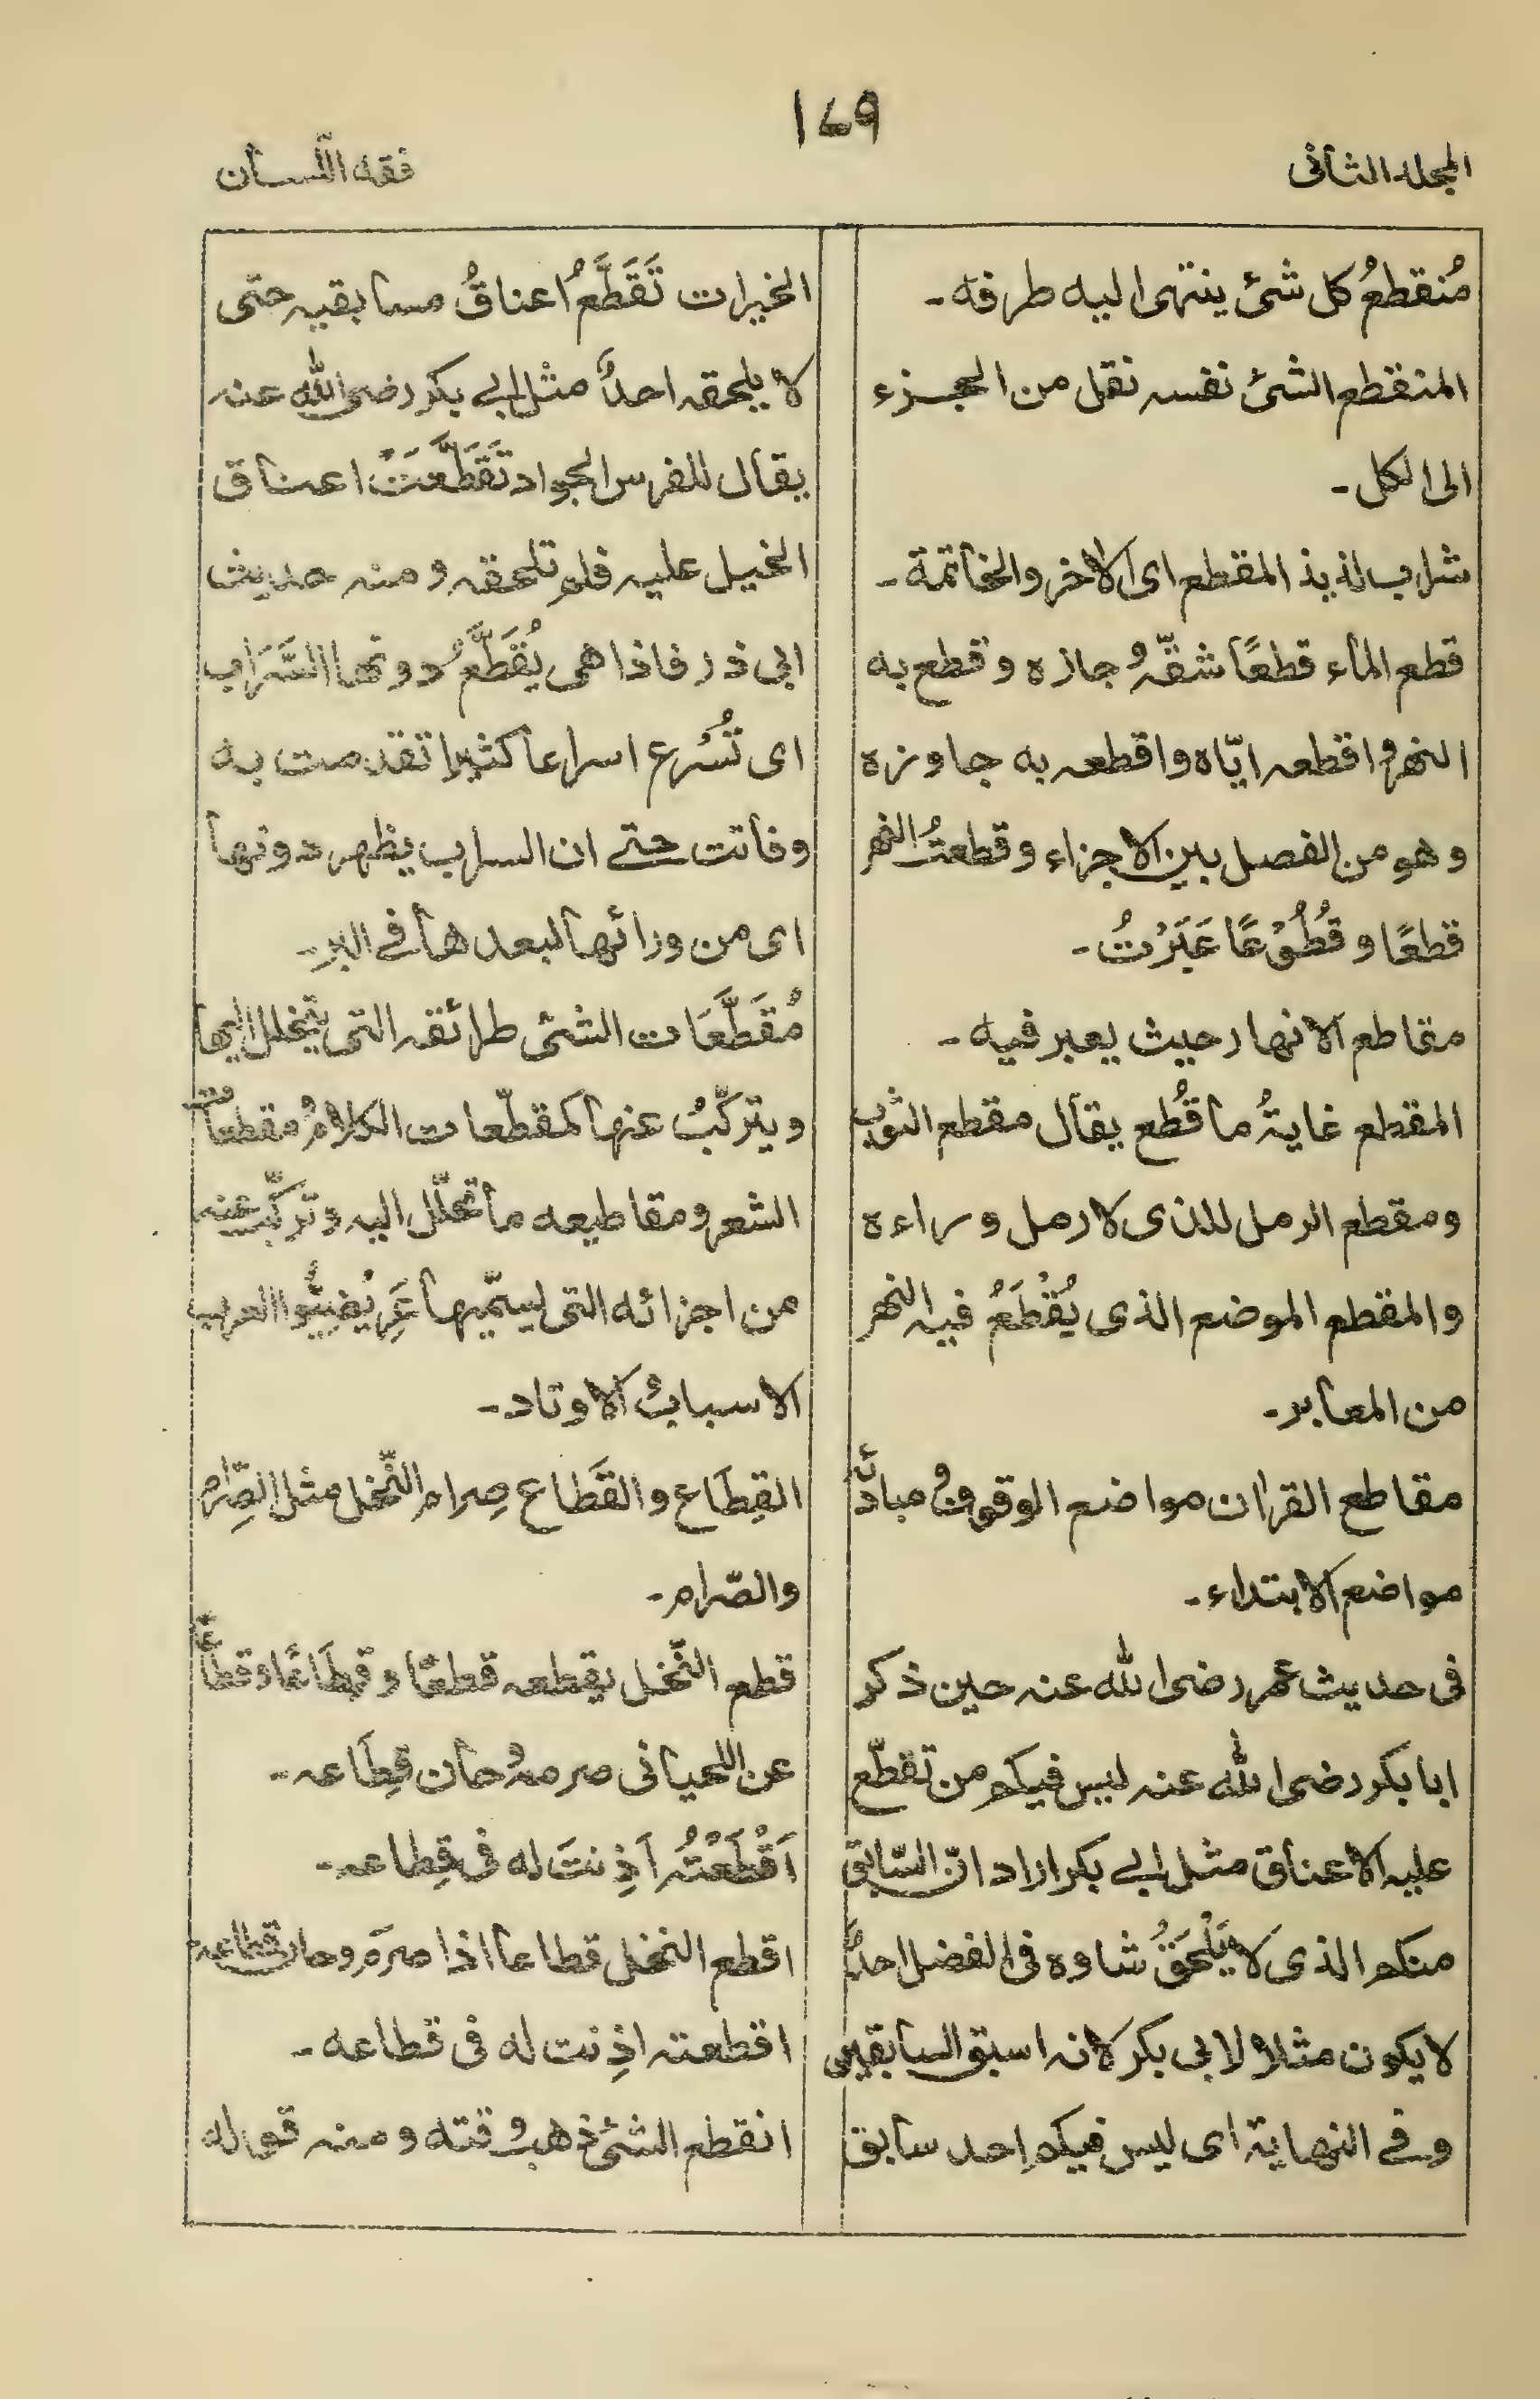 ١٧٩
المجلد الثانى
فقه اللسان
مُنقطعُ كل شئ ينتهى اليه طرفه ـ
المنقطع الشئ نفسه نقل من الجزء
الى الكل ـ
شراب لذيذ المقطع اى الاخر والخاتمة ـ
قطع الماء قطعًا شقّهُ و جازه و قطع به
النهر و اقطعه ايّاه واقطعه به جاوزه
وهو من الفصل بين الاجزاء وقطعتُ النهر
قطعًا و قُطُوْعًا عَبَرْتُ ـ
مقاطع الانهار حيث يعبر فيه ـ
المقطع غايةُ ما قُطع يقال مقطع الثوب
ومقطع الرمل للذى لا رمل وراءه
والمقطع الموضع الذى يُقْطَعُ فيه النهر
من المعابر ـ
مقاطع القران مواضع الوقوف و مباديه
مواضع الابتداء ـ
فى حديث عمر رضى الله عنه حين ذكر
ابا بكر رضى الله عنه ليس فيكم من تقطّع
عليه الاعناق مثل ابي بكر اراد انّ السّابق
منكم الذى لا يَلْحَقُ شاوه فى الفضل احدٌ
لا يكون مثلا لابى بكر لانه اسبق السابقين
وفي النهاية اى ليس فيكم احد سابق
الخيرات تَقَطَّعُ اعناقُ مسابقيه حتى
لا يلحقه احدٌ مثل ابي بكر رضى الله عنه
يقال للفرس الجواد تَقَطَّعَتْ اعناق
الخيل عليه فلم تلحقه ومنه حديث
ابى ذر فاذا هى يُقَطَّعُ دونها السَّرَاب
اى تُسْرع اسراعا كثيرا تقدمت به
وفاتت حتے ان السراب يظهر دونها
اى من ورائها لبعدها في البر ـ
مُقَطَّعَات الشئ طرائقه التى يتحلل اليها
ويتركّبُ عنها كمقطّعات الكلام و مقطعات
الشعر و مقاطيعه ما تحلّل اليه وتركّب عنه
من اجزائه التى يسمّيها عَرُوْضِيُّوا العرب
الاسباب و الاوتاد ـ
القِطَاع والقَطاع صِرام النّخل مثل الصِّرام
والصّرام ـ
قطع النّخل يقطعه قطعًا و قِطَاعًا و قَطاعًا
عن اللحيانى صرمهُ و حان قِطَاعه ـ
اَقْطَعْتُه اَذِنتَ له فى قِطاعه ـ
اقطع النخل قطاعا اذا صرم و حان قطاعه
اقطعته اذِنت له فى قطاعه ـ
انقطع الشئ ذهب وقته ومنه قوله